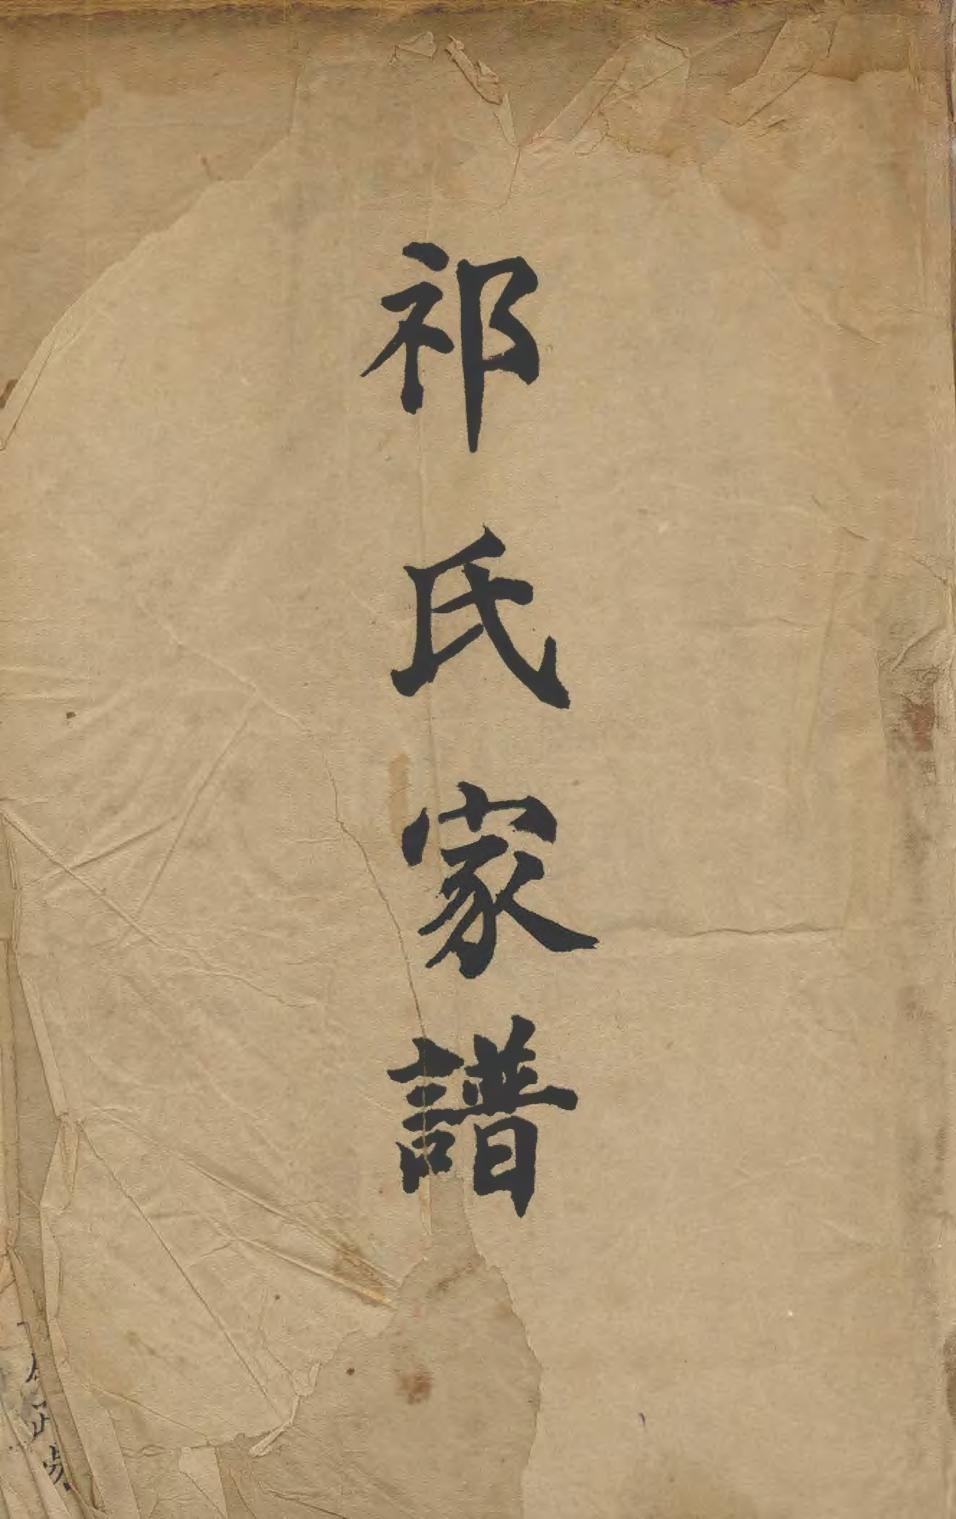 祁氏家譜